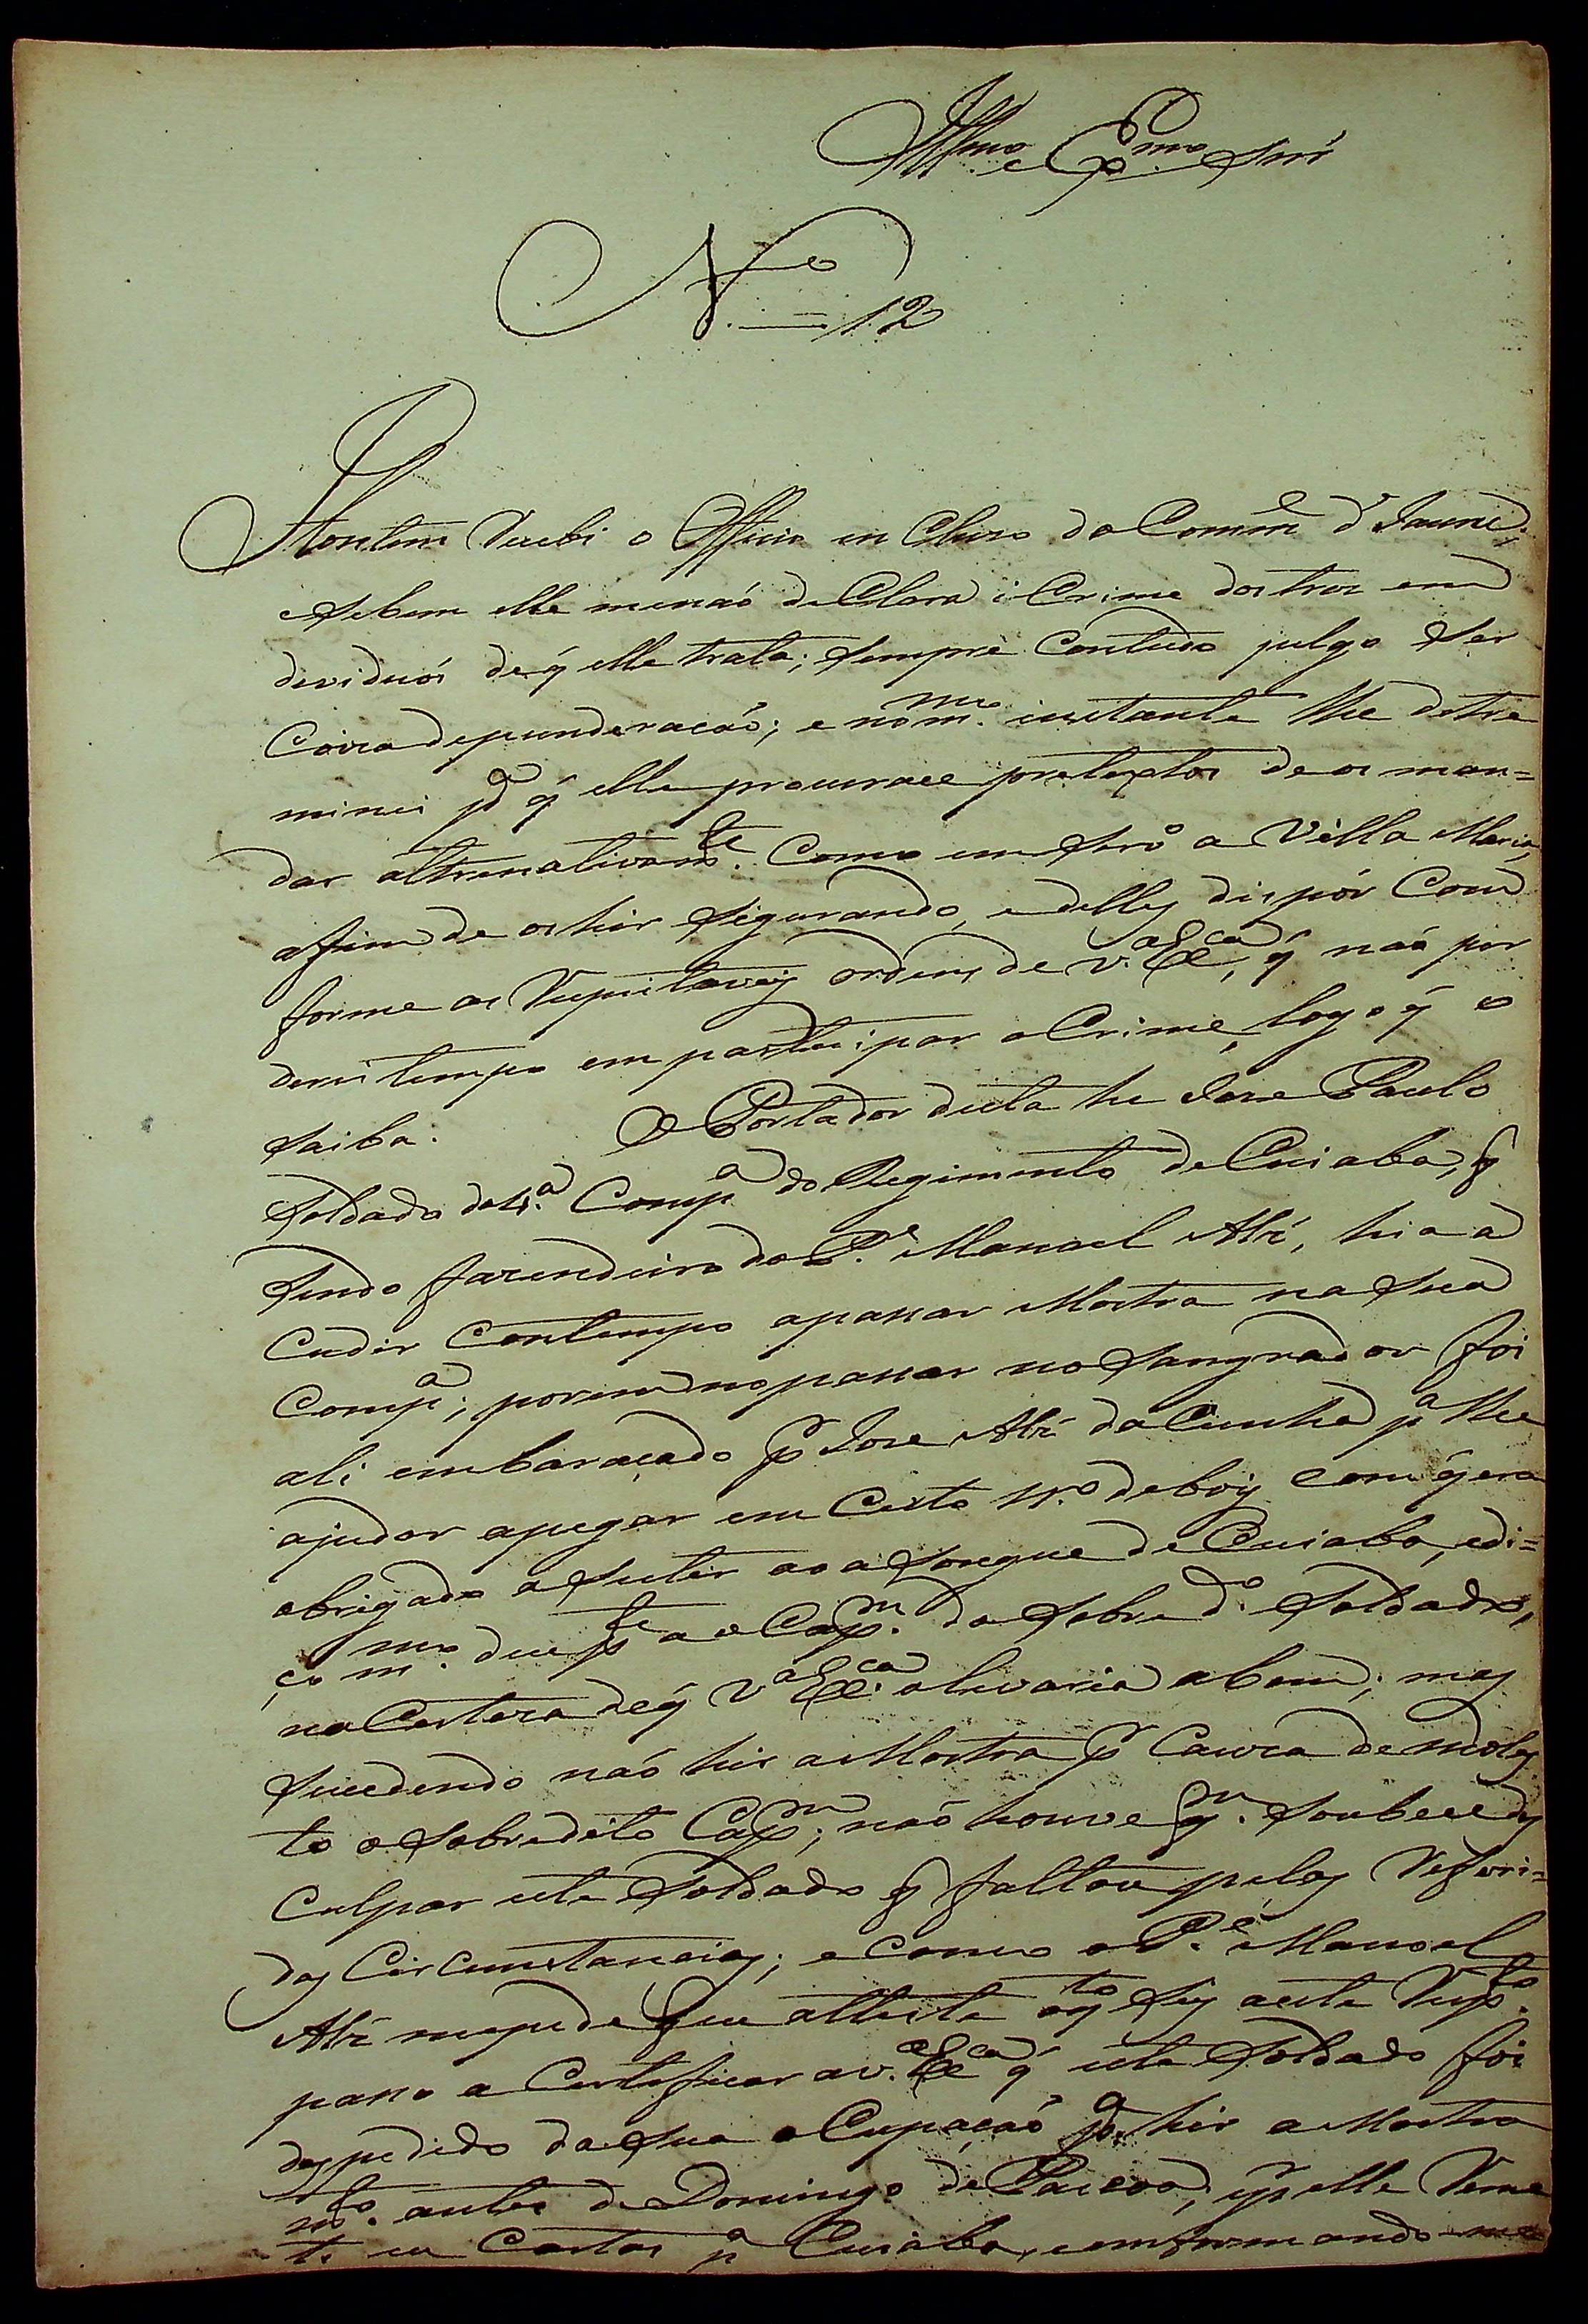 Illmo. e Exmo. Snr
No. = 12
Hontem Recebi o Officio in Cluzo do Comme. d' Jauru,
e Sebem elle menaõ deClara o Crime dos tres em
deviduos deq̃ elle trata; Sempre Contudo julgo Ser
Coiza deponderacaõ; e no mmo. instante lhe detre
minei pa. q̃ elle procurace pretextos de os man=
dar alternativamte. Como um Sro a Villa Maria,
afim de os hir Segurando, e delles dispôr Com
forme as Respeitaveis ordens de V.a Exca, q̃ naõ per
derei tempo em partecipar o Crime, logo q̃ o
Saiba. O Portador desta he Joze Paulo
Soldado da 4.a Compa. do Regimento de Cuiaba, q̃
Sendo fazendeiro do Pe. Manoel Alz̃, hia a
Cudir Contempo apassar Mostra na Sua
Compa; porem no passar no Sangrador foi
ali embaraçado pr. Joze Alz̃ da Cunha pa lhe
ajudar apegar em Certo No. debois Com q̃ era
obrigado a Sestir ao aSougue de Cuiaba, edi=
ço mmo. deu pte ao Capm. do Sobredo. Soldado,
na Certeza deq̃ V.a Exca. olevaria abem; mas
Sucedendo naõ hir a Mostra pr Cauza de moles
to o Sobredito Capm.; naõ houve qm. Soubece des
Culpar este Soldado q̃ faltou pelas Referi=
das CirCunstancias; e como o Pe. Manoel
Alz̃ mepede que atteste
passo a Certeficar a V.a Exca q̃ este Soldado foi
despedido da Sua oCupaçaõ pa. hir a Mostra
mto. antes de Domingo de Pascoa, q̃ elle Reme
te. as Cartas pa Cuiaba, emformando me